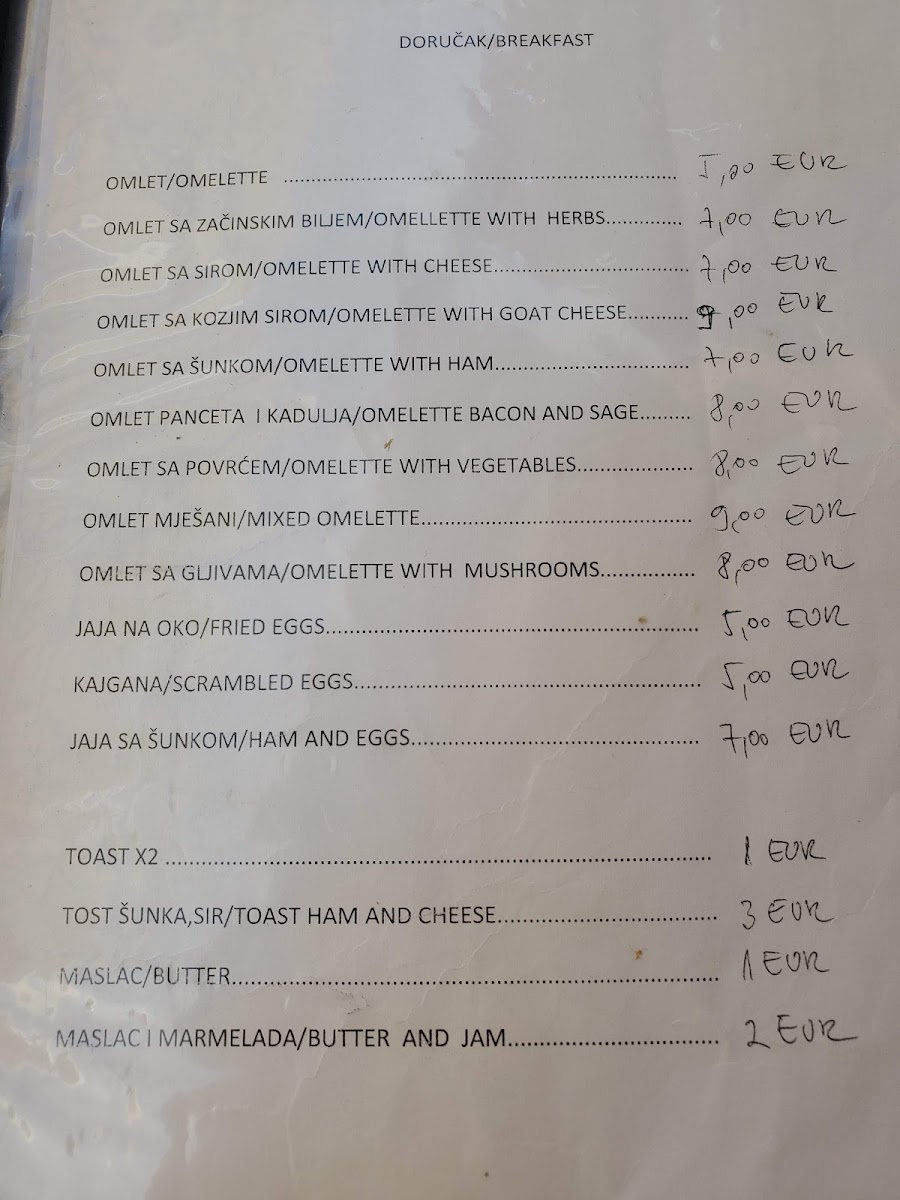 DORUČAK/BREAKFAST
OMLET/OMELETTE ........................................................................ 5,00 EUR
OMLET SA ZAČINSKIM BILJEM/OMELLETTE WITH HERBS............. 7,00 EUR
OMLET SA SIROM/OMELETTE WITH CHEESE................................. 7,00 EUR
OMLET SA KOZJIM SIROM/OMELETTE WITH GOAT CHEESE.......... 9,00 EUR
OMLET SA ŠUNKOM/OMELETTE WITH HAM................................. 7,00 EUR
OMLET PANCETA I KADULJA/OMELETTE BACON AND SAGE......... 8,00 EUR
OMLET SA POVRĆEM/OMELETTE WITH VEGETABLES.................... 8,00 EUR
OMLET MJEŠANI/MIXED OMELETTE.............................................. 9,00 EUR
OMLET SA GLJIVAMA/OMELETTE WITH MUSHROOMS................ 8,00 EUR
JAJA NA OKO/FRIED EGGS................................................................ 5,00 EUR
KAJGANA/SCRAMBLED EGGS........................................................... 5,00 EUR
JAJA SA ŠUNKOM/HAM AND EGGS................................................. 7,00 EUR
TOAST X2 .............................................................................................. 1 EUR
TOST ŠUNKA,SIR/TOAST HAM AND CHEESE..................................... 3 EUR
MASLAC/BUTTER................................................................................. 1 EUR
MASLAC I MARMELADA/BUTTER AND JAM................................... 2 EUR